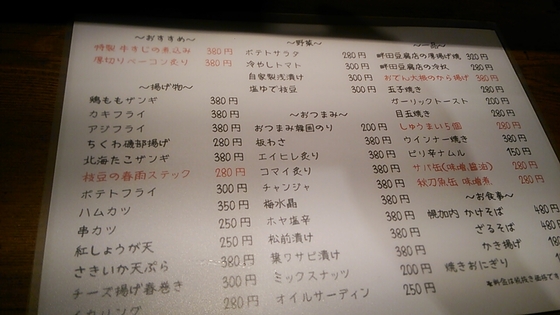 〜おすすめ〜
特製 牛すじの煮込み 380円
厚切りベーコン炙り 380円
〜揚げ物〜
鶏ももザンギ 380円
カキフライ 380円
アジフライ 380円
ちくわ磯部揚げ 280円
北海たこザンギ 380円
枝豆の春雨スティック 280円
ポテトフライ 300円
ハムカツ 350円
串カツ 250円
紅しょうが天 250円
さきいか天ぷら 380円
チーズ揚げ春巻き 300円
280円
〜野菜〜
ポテトサラダ 280円
冷やしトマト 300円
自家製浅漬け 300円
塩ゆで枝豆 300円
〜おつまみ〜
おつまみ韓国のり 200円
板わさ 380円
エイヒレ炙り 380円
コマイ炙り 380円
チャンジャ 380円
梅水晶 380円
ホヤ塩辛 380円
松前漬け 380円
葉ワサビ漬け 380円
ミックスナッツ 200円
オイルサーディン 250円
畔田豆腐店の厚揚げ焼 320円
畔田豆腐店の冷奴 280円
おでん大根のから揚げ 380円
玉子焼き 280円
ガーリックトースト 200円
目玉焼き 280円
しゅうまい5個 280円
ウインナー焼き 380円
ピリ辛ナムル 150円
サバ缶(味噌/醤油) 280円
秋刀魚缶 味噌煮 380円
〜お食事〜
幌加内 かけそば 480円
ざるそば 480円
かき揚げ 180円
焼きおにぎり